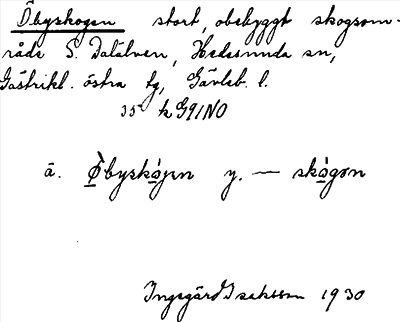 Öbyskogen stort, obebyggt skogsom-
råde S. Dalälven, Hedesunda sn,
Gästrikl. östra tg, Gävleb. l.
35 k G91NO
ä. Öbyskogen y. — skogen
Ingegärd Isaksson 1930